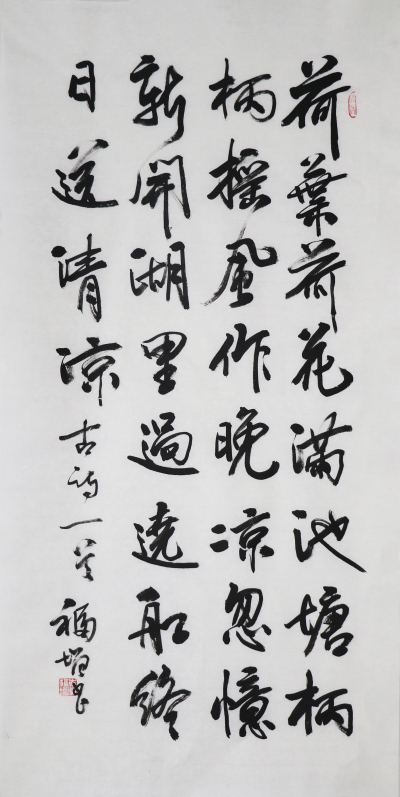 荷葉荷花滿池塘柄
柄摇風作晚凉忽憶
新開湖里過遶船終
日送清凉
古詩一首 福增书